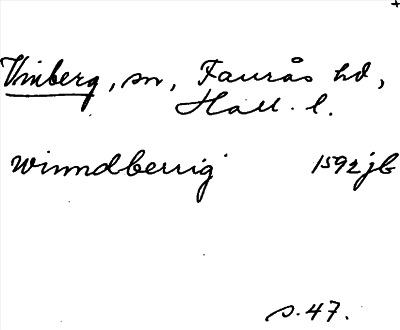 Vinberg, sn, Faurås hd,
Hall. l.
Winndberrig 1592 jb
s. 47.